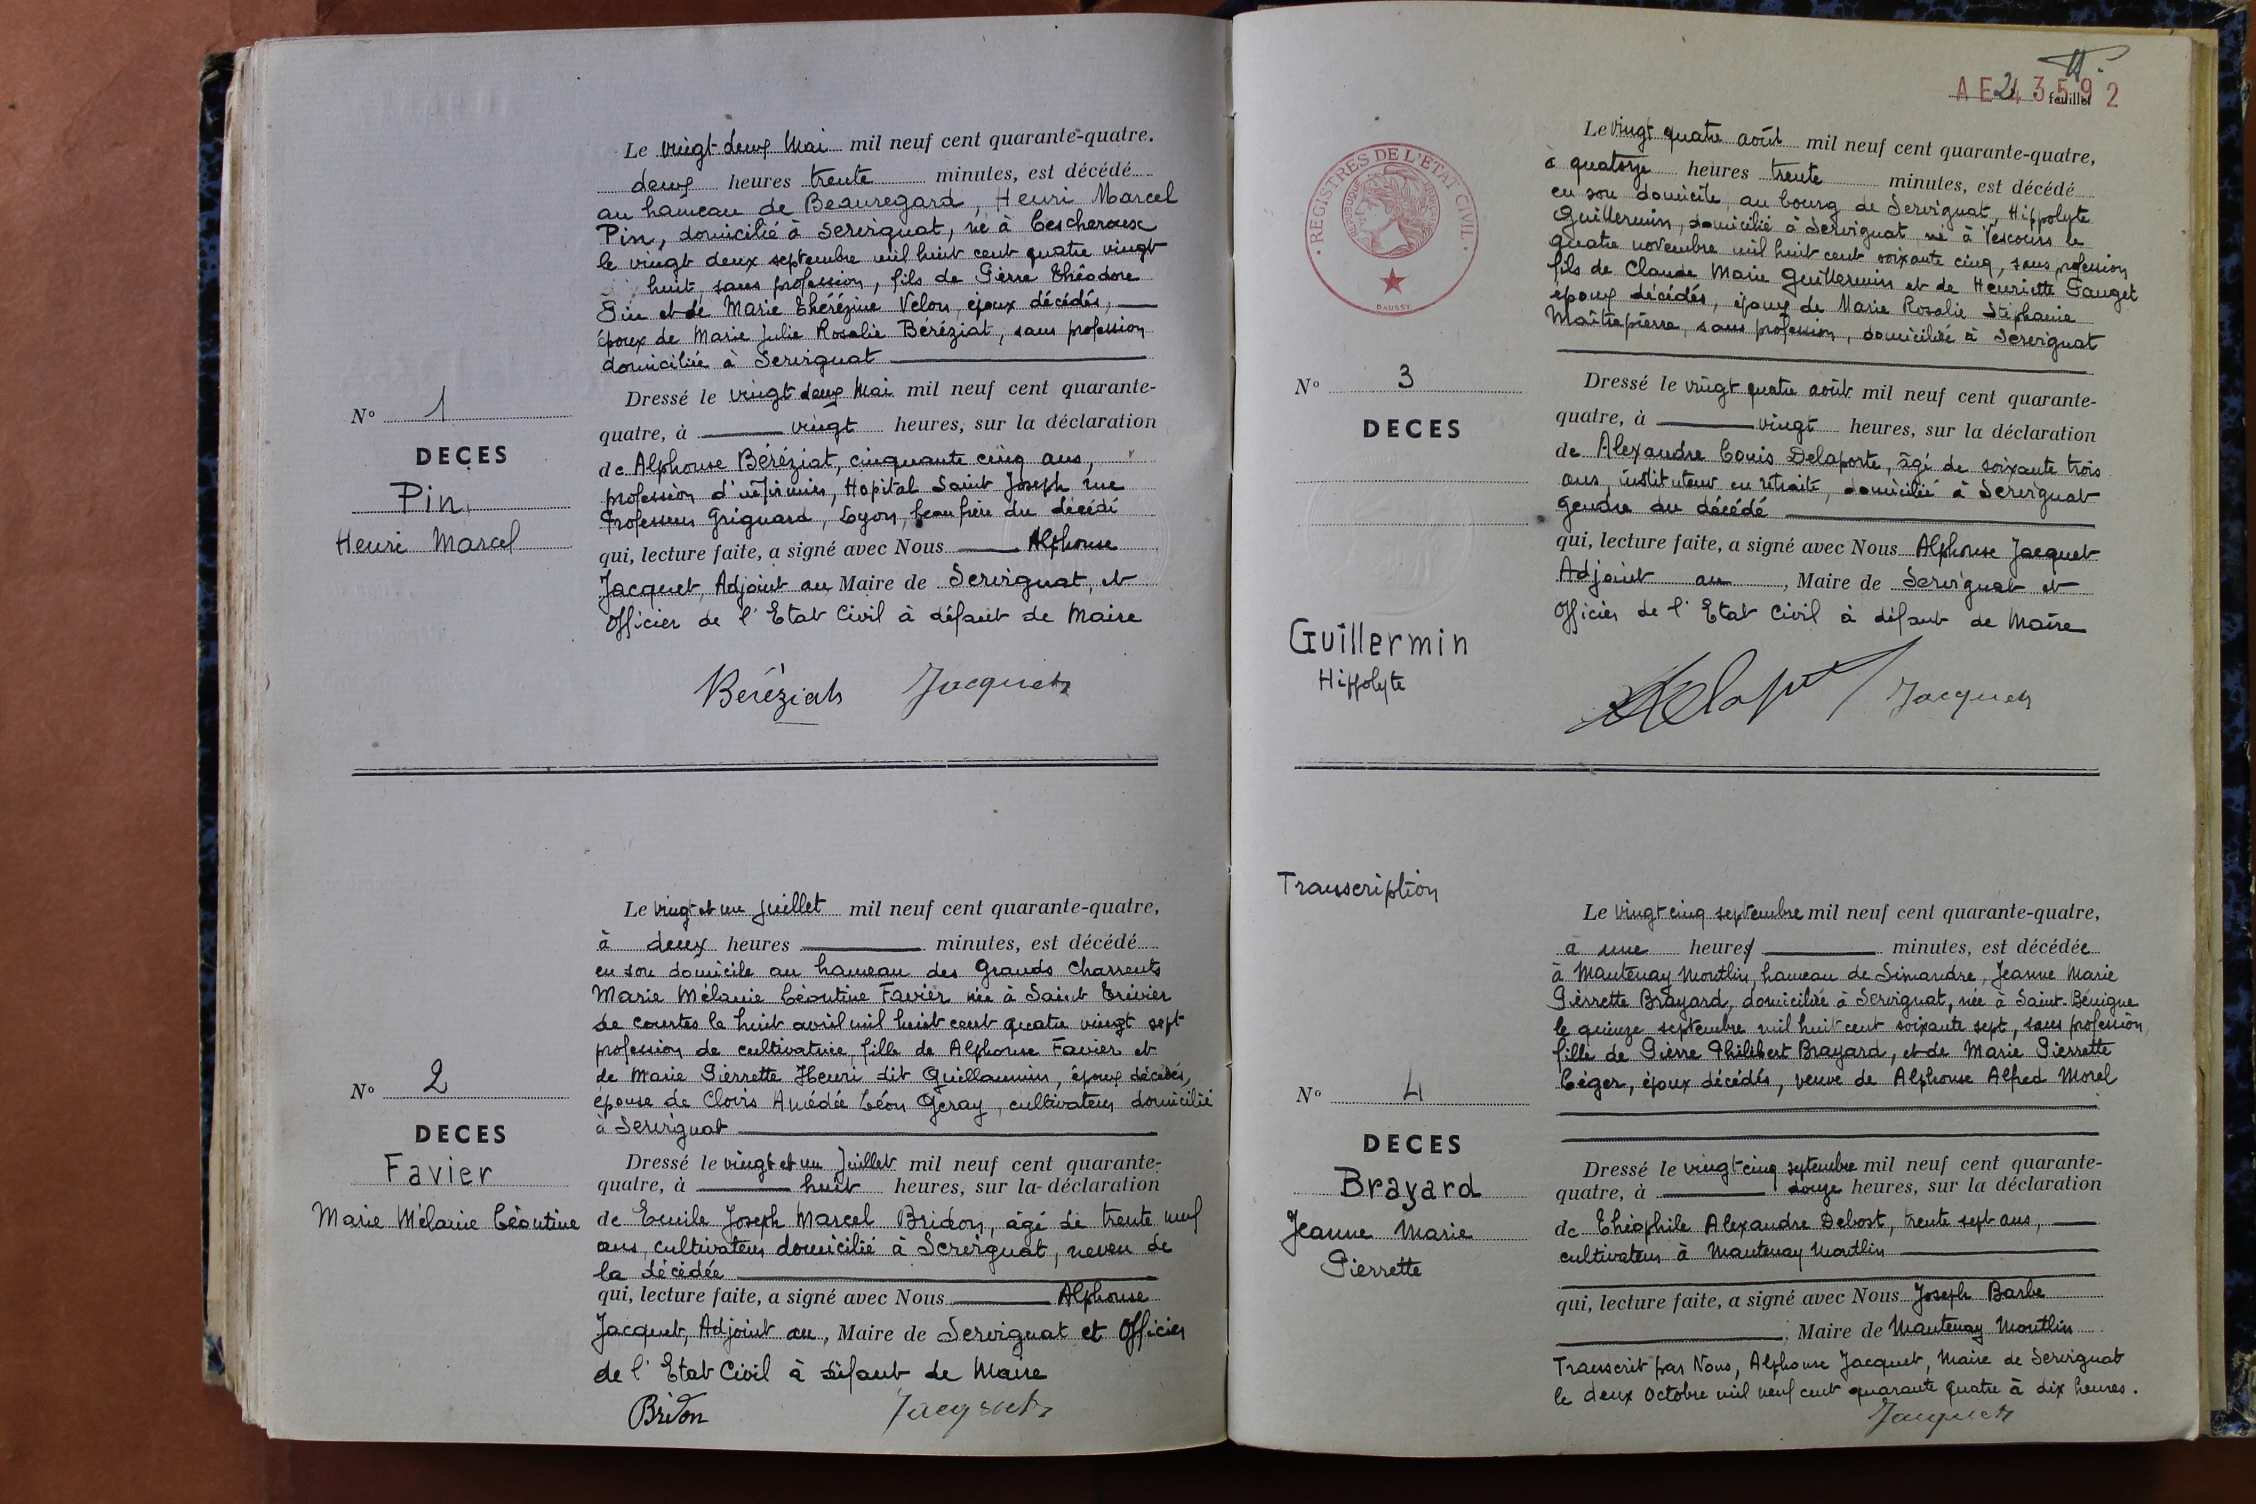 Le vingt-deux Mai mil neuf cent quarante-quatre.
deux heures trente minutes, est décédé
au hameau de Beauregard, Henri Marcel
Pin, domicilié à Servignat, né à Lescheroux
le vingt deux septembre mil huit cent quatre vingt
huit, sans profession, fils de Pierre Théodore
Pin et de Marie Thérézine Velon, époux décédés,
époux de Marie Julie Rosalie Béréziat, sans profession
domiciliée à Servignat
Dressé le vingt deux Mai mil neuf cent quarante-
quatre, à vingt heures, sur la déclaration
de Alphonse Béréziat, cinquante cinq ans,
profession d'infirmier, Hopital Saint Joseph rue
Professeur Grignard, Lyon, beau frère du décédé
qui, lecture faite, a signé avec Nous Alphonse
Jacquet, Adjoint au Maire de Servignat, et
Officier de l'Etat Civil à défaut de Maire
Béréziat Jacquet
N° 1
DECES
Pin
Henri Marcel
Le vingt et un Juillet mil neuf cent quarante-quatre,
à deux heures minutes, est décédé
en son domicile au hameau des Grands Charrents
Marie Mélanie Léontine Favier née à Saint Trivier
de courtes le huit avril mil huit cent quatre vingt sept
profession de cultivatrice, fille de Alphonse Favier et
de Marie Pierrette Henri dit Guillaumin, époux décédés,
épouse de Clovis Amédée Léon Geray, cultivateur domicilié
à Servignat
Dressé le vingt et un Juillet mil neuf cent quarante-
quatre, à huit heures, sur la déclaration
de Emile Joseph Marcel Bridon, âgé de trente neuf
ans, cultivateur domicilié à Servignat, neveu de
la décédée
qui, lecture faite, a signé avec Nous Alphonse
Jacquet, Adjoint au, Maire de Servignat et Officier
de l'Etat Civil à défaut de Maire
Bridon Jacquet
N° 2
DECES
Favier
Marie Mélanie Léontine
AE 43592
2
feuillet
REGISTRES DE L'ETAT CIVIL
DAUSSY
Le vingt quatre août mil neuf cent quarante-quatre,
à quatorze heures trente minutes, est décédé
en son domicile, au bourg de Servignat, Hippolyte
Guillermin, domicilié à Servignat né à Vescours le
quatre novembre mil huit cent soixante cinq, sans profession
fils de Claude Marie Guillermin et de Henriette Pauget
époux décédés, époux de Marie Rosalie Stéphanie
Maitrepierre, sans profession, domiciliée à Servignat
Dressé le vingt quatre août mil neuf cent quarante-
quatre, à vingt heures, sur la déclaration
de Alexandre Louis Delaporte, âgé de soixante trois
ans, instituteur en retraite, domicilié à Servignat
gendre du décédé
qui, lecture faite, a signé avec Nous Alphonse Jacquet
Adjoint au, Maire de Servignat et
Officier de l'Etat Civil à défaut de Maire
Jacquet
N° 3
DECES
Guillermin
Hippolyte
Transcription
Le vingt cinq septembre mil neuf cent quarante-quatre,
à une heures minutes, est décédée
à Mantenay Montlin, hameau de Simandre, Jeanne Marie
Pierrette Brayard, domiciliée à Servignat, née à Saint-Bénigne
le quinze septembre mil huit cent soixante sept, sans profession,
fille de Pierre Philibert Brayard, et de Marie Pierrette
Léger, époux décédés, veuve de Alphonse Alfred Morel
Dressé le vingt-cinq septembre mil neuf cent quarante-
quatre, à douze heures, sur la déclaration
de Théophile Alexandre Debost, trente sept ans,
cultivateur à Mantenay Montlin
qui, lecture faite, a signé avec Nous Joseph Barbe
, Maire de Mantenay Montlin
Transcrit par Nous, Alphonse Jacquet, Maire de Servignat
le deux Octobre mil neuf cent quarante quatre à dix heures.
Jacquet
N° 4
DECES
Brayard
Jeanne Marie
Pierrette